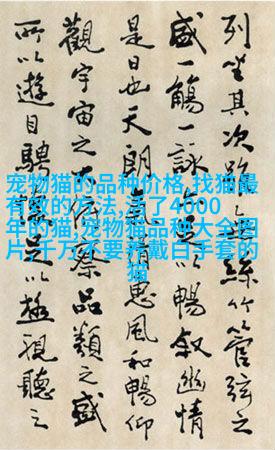 列坐其次雖無絲竹管弦之
盛一觴一詠亦足以暢叙幽情
是日也天朗氣清惠風和暢仰
觀宇宙之大俯察品類之盛
所以遊目騁懷足以極視聽之
宠物猫的品种价格,找猫最
有效的方法,活了4000
年的猫,宠物猫品种大全图
片,千万不要养戴白手套的
猫